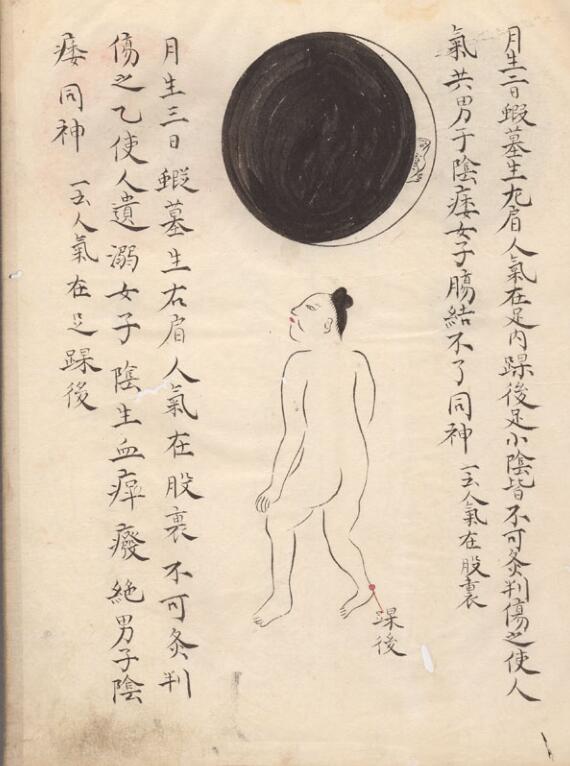 月生二日蝦墓生九肩人氣在足内踝後足小陰皆不可灸判傷之使人
氣共男子陰痿女子腸結不了同神 一云人氣在股裏
踝後
月生三日蝦墓生右肩人氣在股裏不可灸判
傷之乙使人遺溺女子陰生血痺癈絶男子陰
痿同神 一云人氣在足踝後